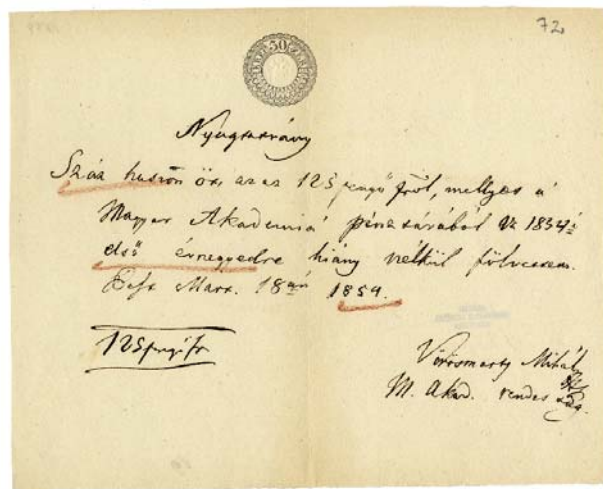 72
50
Nyugtatvány
Száz huszon öt, azaz 125 pengő frtról, mellyet a
Magyar Akademia pénztárából
első évnegyedre hiány nélkül fölvettem.
Pest Mart. 18án 1854.
125 pengő fr
Vörösmarty Mihály
M. Akad. rendes tag.